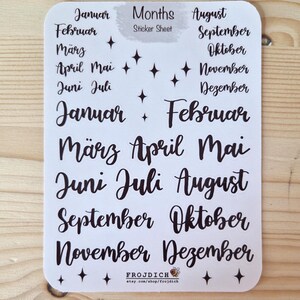 Months
Sticker Sheet
Januar August
Februar September
März Oktober
April Mai November
Juni Juli Dezember
Januar Februar
März April Mai
Juni Juli August
September Oktober
November Dezember
FROJDICH
etsy.com/shop/frojdich